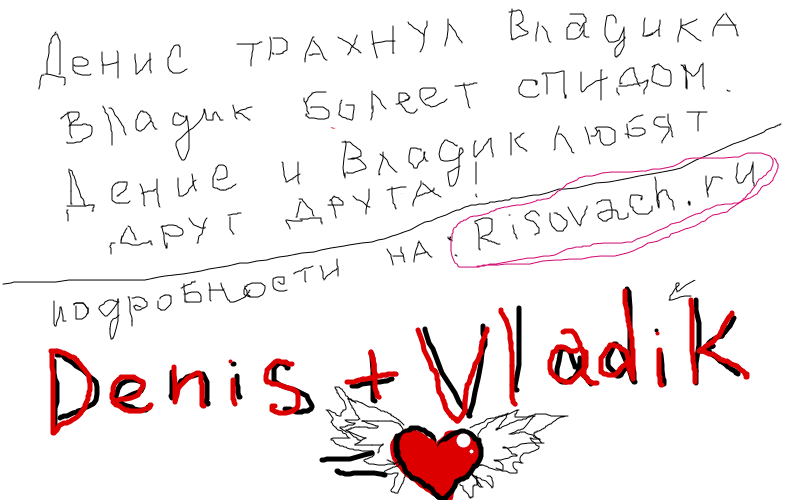 Денис трахнул Владика
Владик болеет спидом.
Денис и Владик любят
друг друга!
подробности на: Risovach.ru
Denis + Vladik